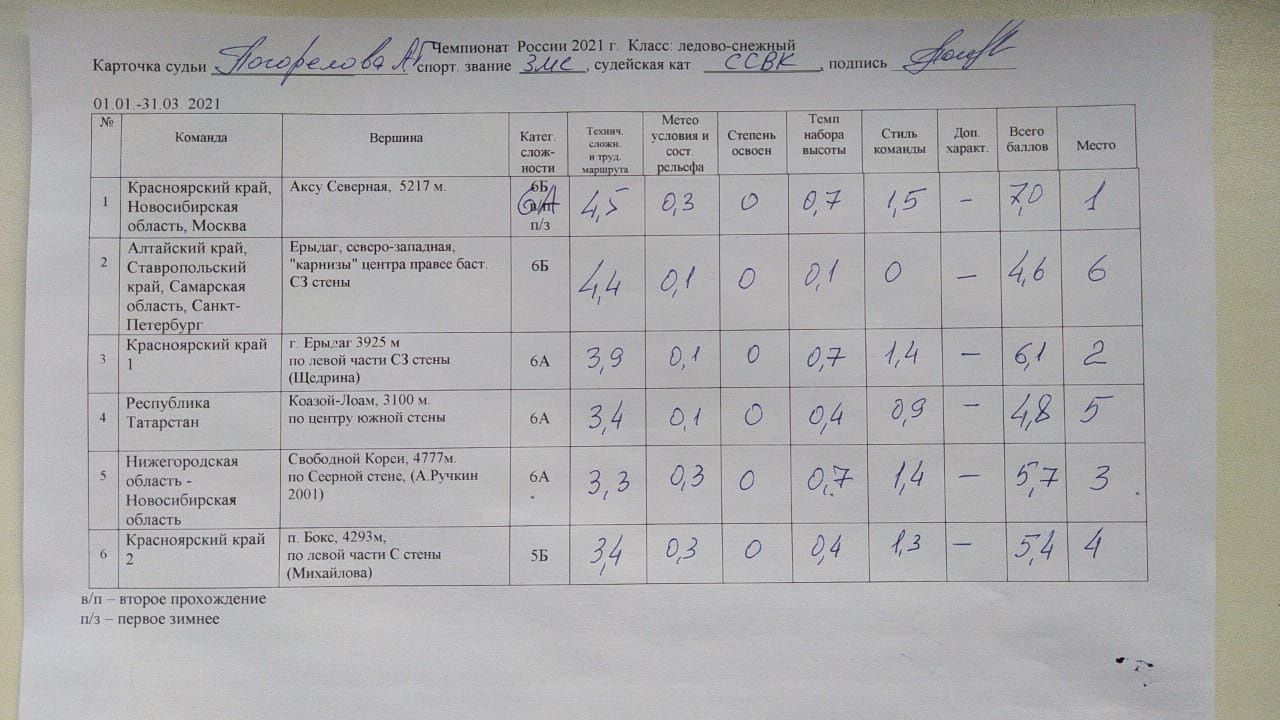 Чемпионат России 2021 г. Класс: ледово-снежный
Карточка судьи Погорелова А спорт. звание ЗМС, судейская кат. ССВК, подпись
01.01.-31.03. 2021
№ Команда Вершина Катег. слож- ности Технич. сложн. и труд. маршрута Метео условия и сост. рельефа Степень освоен Темп набора высоты Стиль команды Доп. характ. Всего баллов Место
1 Красноярский край, Новосибирская область, Москва Аксу Северная, 5217 м. 6Б 6А в/п п/з 4,5 0,3 0 0,7 1,5 – 7,0 1
2 Алтайский край, Ставропольский край, Самарская область, Санкт- Петербург Ерыдаг, северо-западная, "карнизы" центра правее баст. СЗ стены 6Б 4,4 0,1 0 0,1 0 – 4,6 6
3 Красноярский край 1 г. Ерыдаг 3925 м по левой части СЗ стены (Щедрина) 6А 3,9 0,1 0 0,7 1,4 – 6,1 2
4 Республика Татарстан Коазой-Лоам, 3100 м. по центру южной стены 6А 3,4 0,1 0 0,4 0,9 – 4,8 5
5 Нижегородская область - Новосибирская область Свободной Кореи, 4777м. по Сеерной стене, (А.Ручкин 2001) 6А 3,3 0,3 0 0,7 1,4 – 5,7 3
6 Красноярский край 2 п. Бокс, 4293м, по левой части С стены (Михайлова) 5Б 3,4 0,3 0 0,4 1,3 – 5,4 4
в/п – второе прохождение
п/з – первое зимнее